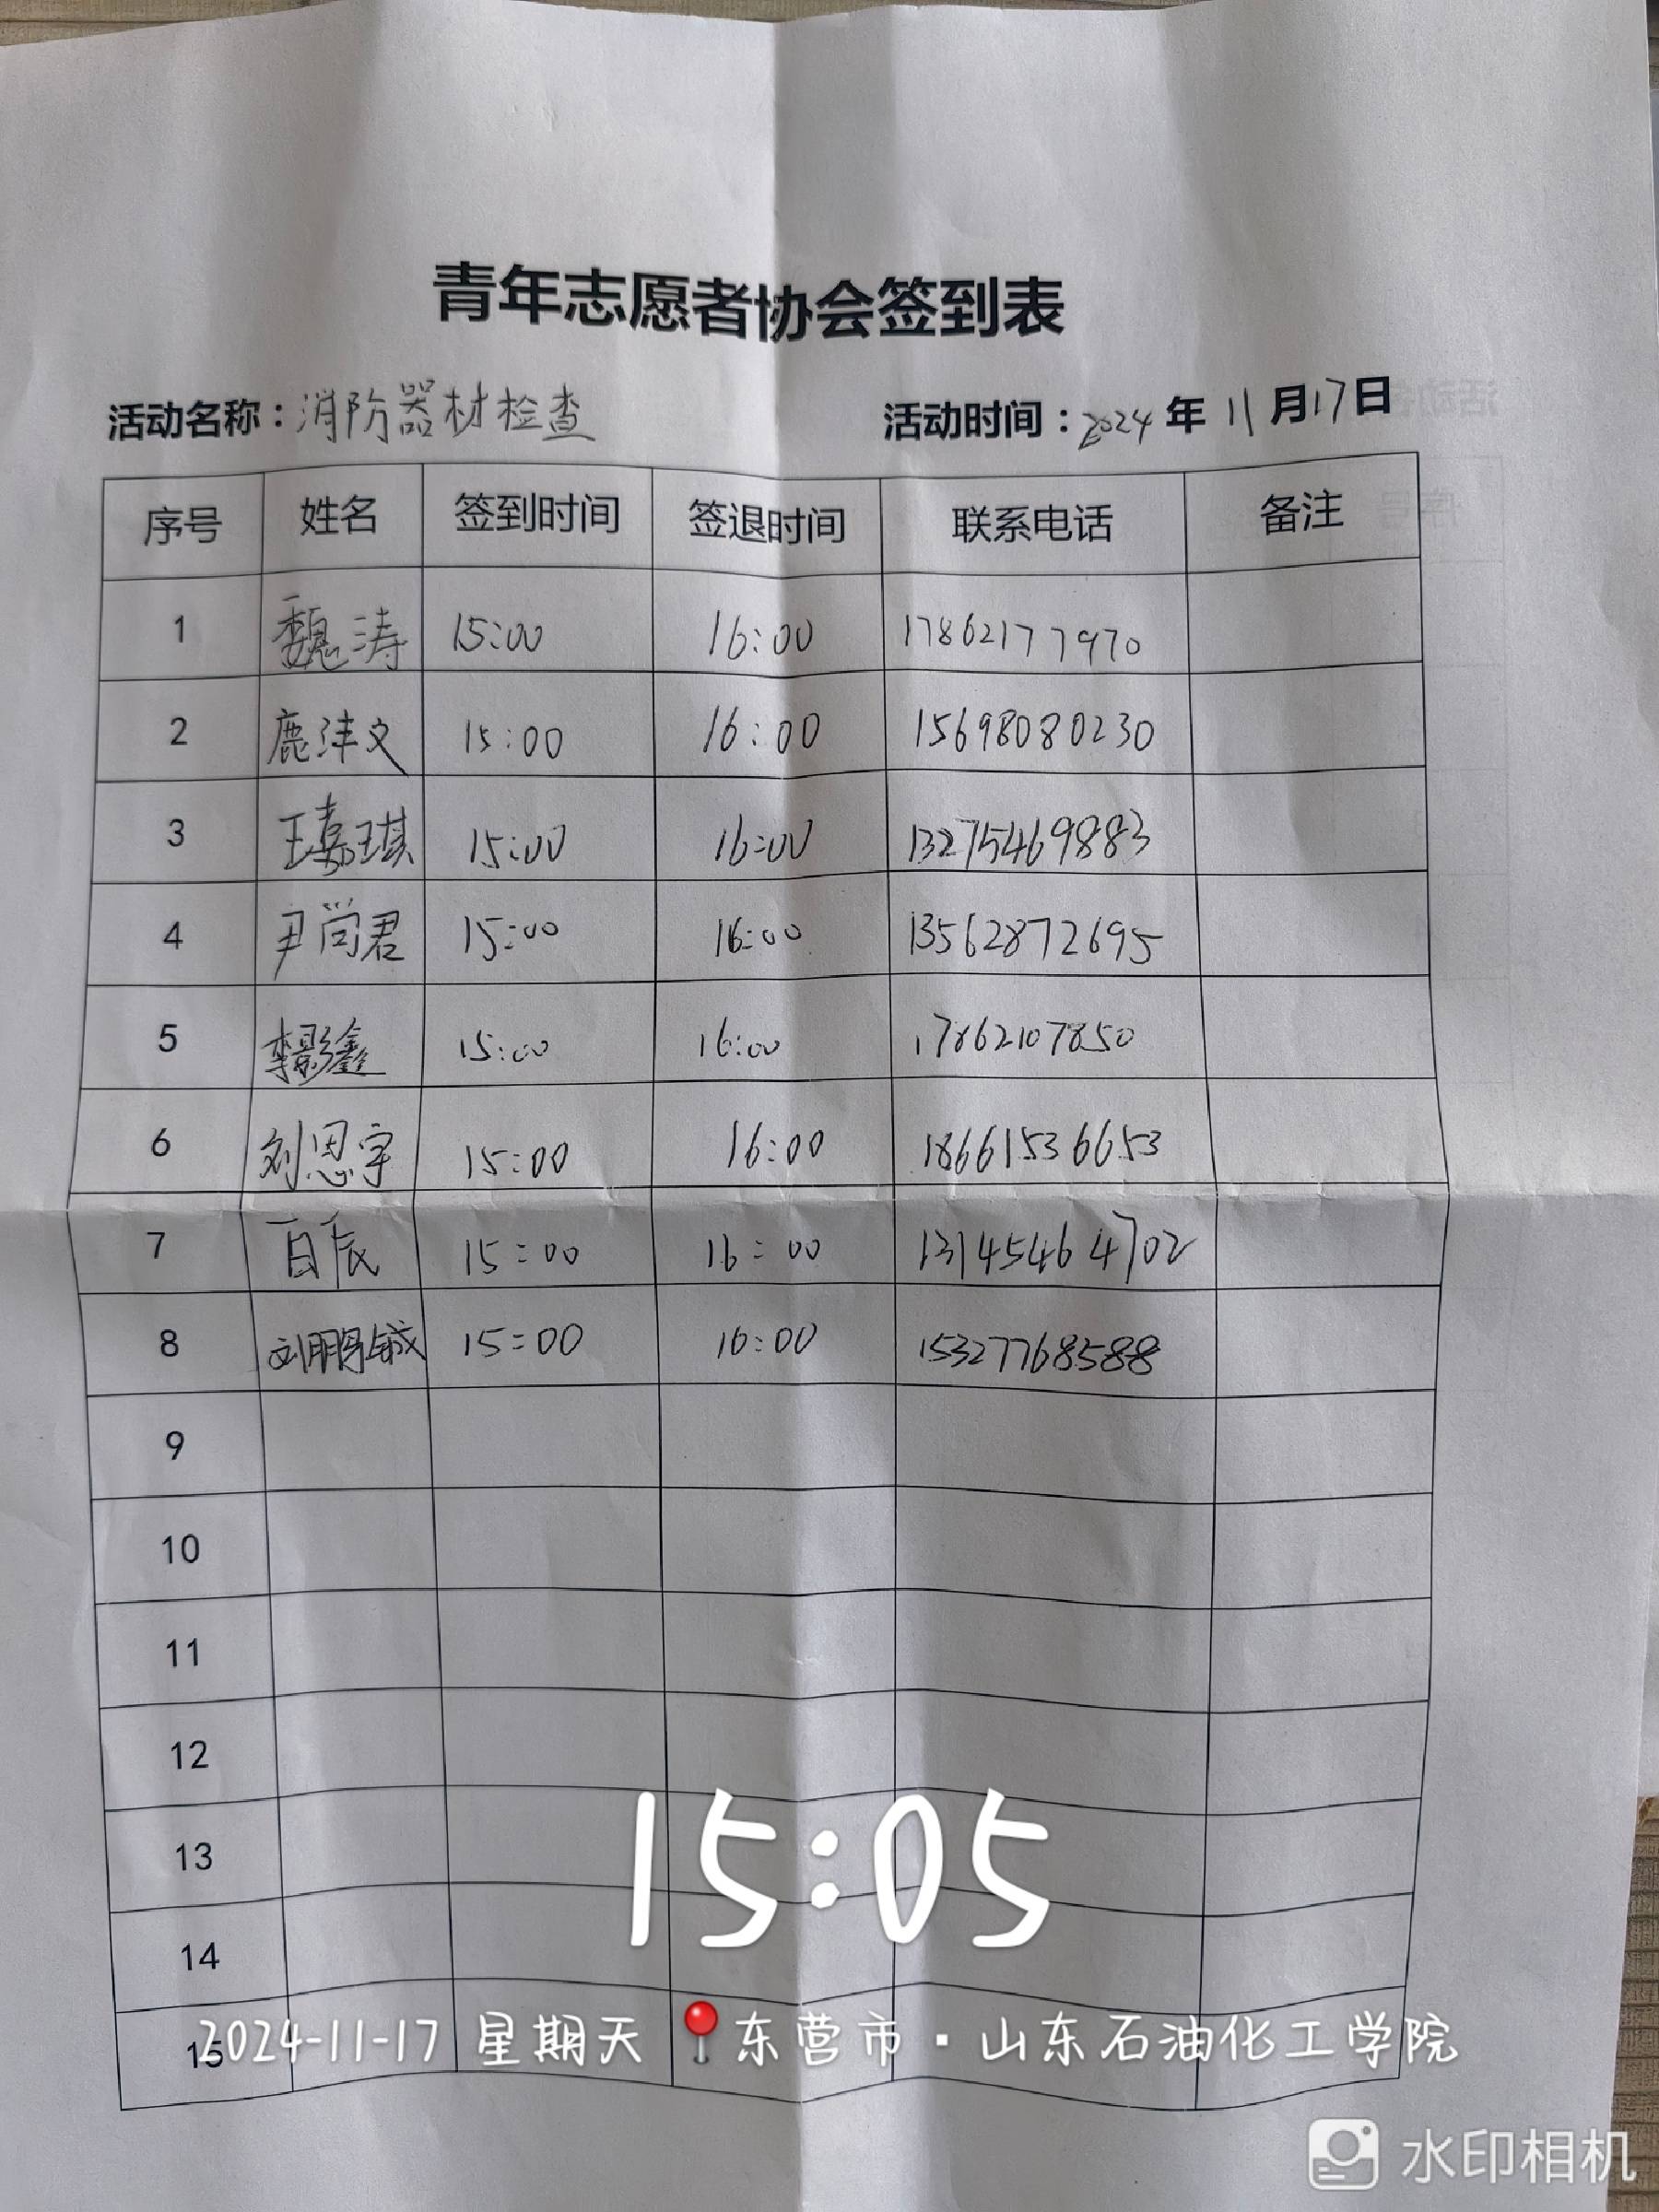 青年志愿者协会签到表
活动名称：消防器材检查 活动时间：2024年11月17日
序号 姓名 签到时间 签退时间 联系电话 备注
1 魏涛 15:00 16:00 17862177970
2 鹿沣文 15:00 16:00 15698080230
3 王嘉琪 15:00 16:00 13275469883
4 尹尚君 15:00 16:00 13562872695
5 李影鑫 15:00 16:00 17862107850
6 刘恩宇 15:00 16:00 18661536653
7 百辰 15:00 16:00 13145464702
8 刘鹏铖 15:00 16:00 15327768588
9
10
11
12
13
14
15
15:05
2024-11-17 星期天 东营市·山东石油化工学院
水印相机